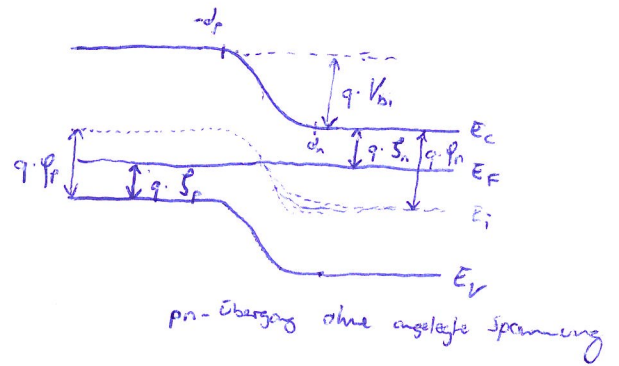 -dₚ
q · V_bi
E_c
dₙ
q · ζₙ
q · φₙ
q · φₚ
q · ζₚ
E_F
E_i
E_V
pn-Übergang ohne angelegte Spannung